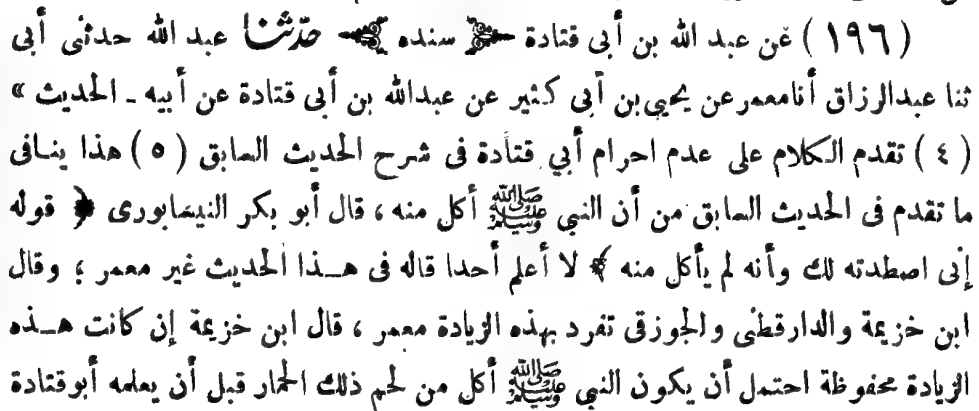 (١٩٦) عن عبد الله بن أبى قتادة ﴿ سنده ﴾ حدّثنا عبد الله حدثنى أبى
ثنا عبدالرزاق أنا معمر عن يحيى بن أبى كثير عن عبدالله بن أبى قتادة عن أبيه ـ الحديث »
(٤) تقدم الكلام على عدم احرام أبي قتادة فى شرح الحديث السابق (٥) هذا ينافى
ما تقدم فى الحديث السابق من أن النبى ﷺ أكل منه ، قال أبو بكر النيسابورى ﴿ قوله
إنى اصطدته لك وأنه لم يأكل منه ﴾ لا أعلم أحدا قاله فى هـذا الحديث غير معمر ؛ وقال
ابن خزيمة والدارقطنى والجوزقى تفرد بهذه الزيادة معمر ، قال ابن خزيمة إن كانت هـذه
الزيادة محفوظة احتمل أن يكون النبى ﷺ أكل من لحم ذلك الحمار قبل أن يعلمه أبو قتادة